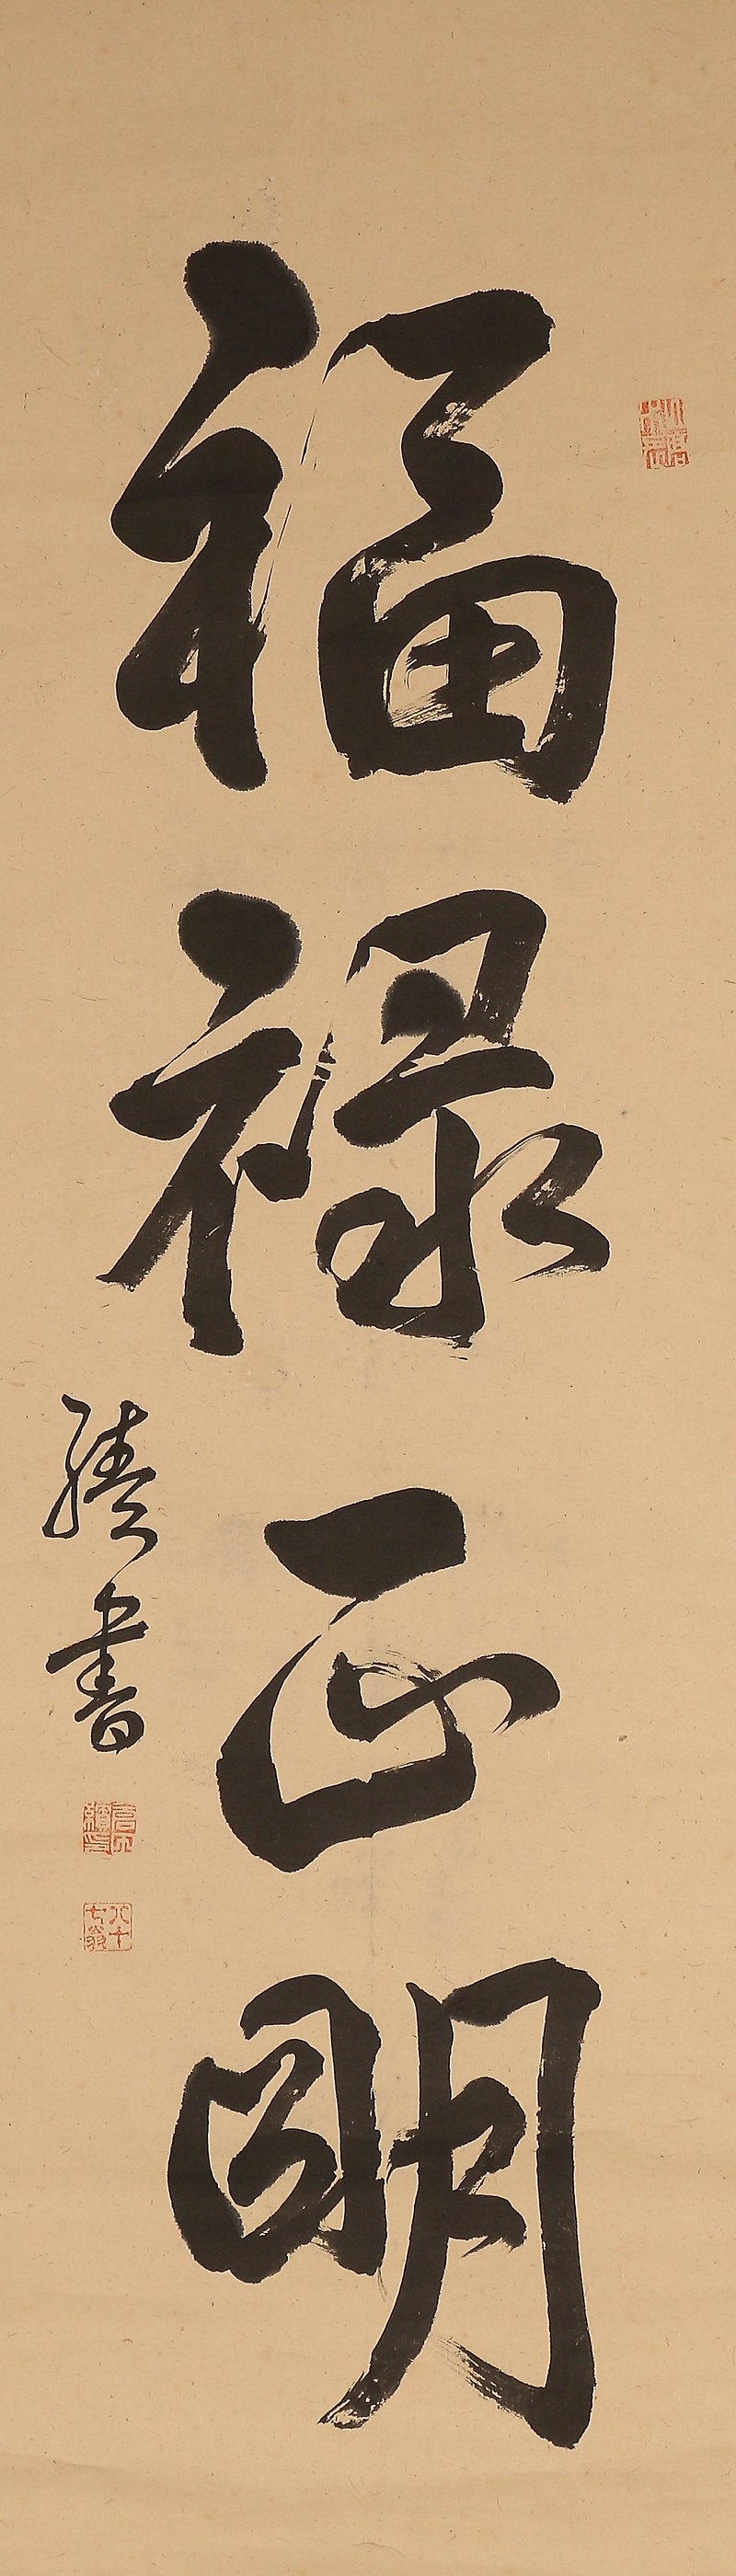 福禄正明
書
八十七翁